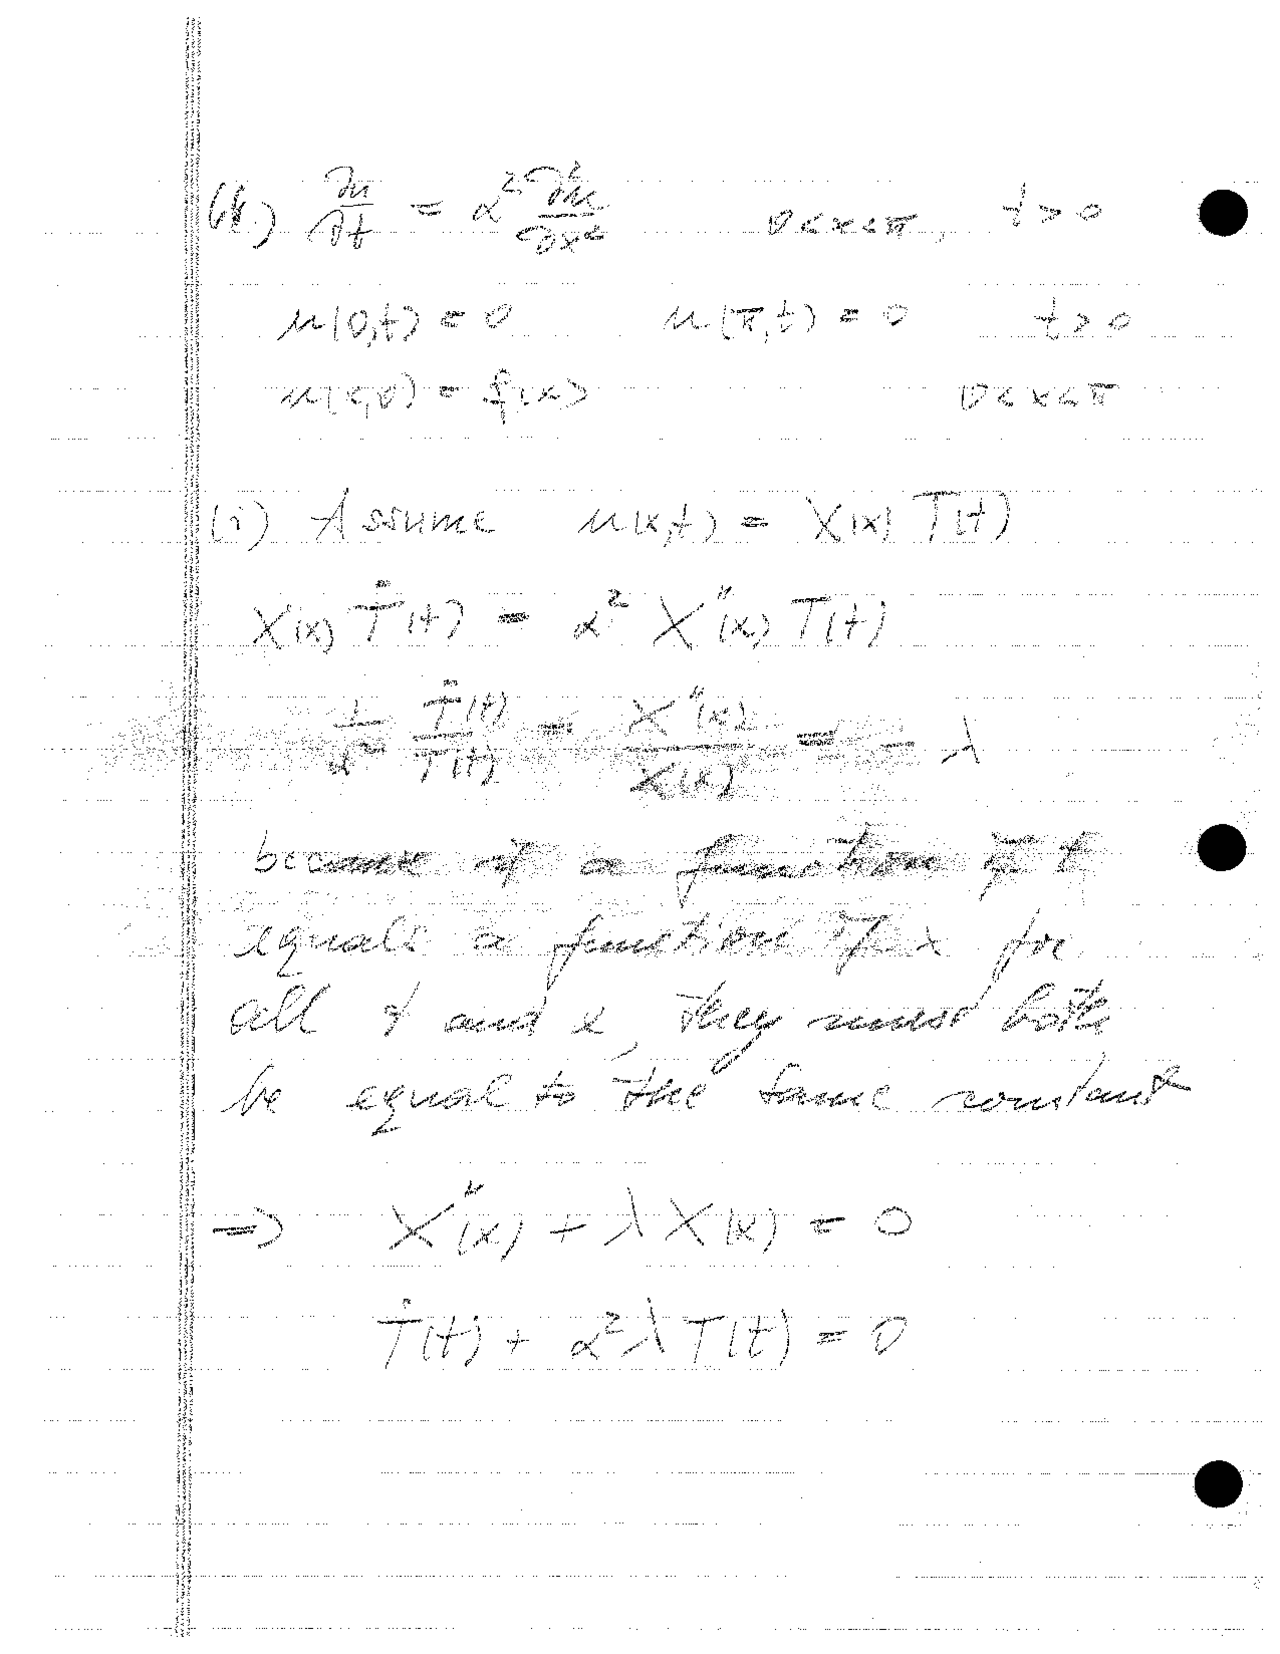 ∂u/∂t = α² ∂²u/∂x² 0<x<π, t>0
u(0,t) = 0 u(π,t) = 0 t>0
u(x,0) = f(x) 0<x<π
(i) Assume u(x,t) = X(x) T(t)
X(x) Ṫ(t) = α² X''(x) T(t)
1/α² Ṫ(t)/T(t) = X''(x)/X(x) = -λ
because if a function of t
equals a function of x for
all t and x, they must both
be equal to the same constant
⇒ X''(x) + λX(x) = 0
Ṫ(t) + α²λT(t) = 0